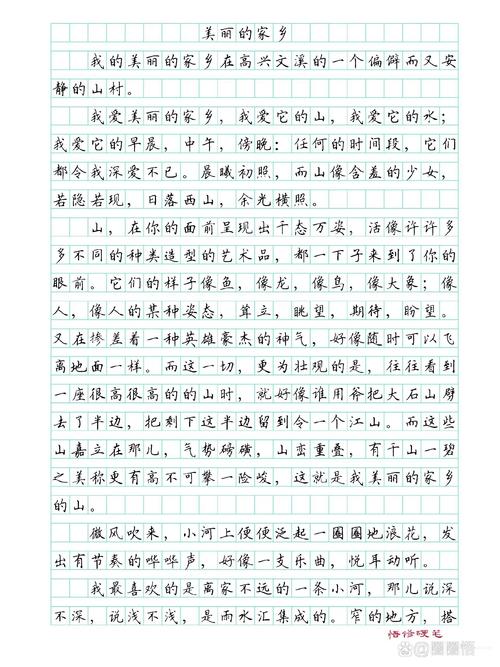 美丽的家乡
我的美丽的家乡在高兴文溪的一个偏僻而又安
静的山村。
我爱美丽的家乡，我爱它的山，我爱它的水；
我爱它的早晨，中午，傍晚：任何的时间段，它们
都令我深爱不已。晨曦初照，而山像含羞的少女，
若隐若现，日落西山，余光横照。
山，在你的面前呈现出千态万姿，活像许许多
多不同的种类造型的艺术品，都一下子来到了你的
眼前。它们的样子像鱼，像龙，像鸟，像大象；像
人，像人的某种姿态，耸立，眺望，期待，盼望。
又在掺羞着一种英雄豪杰的神气，好像随时可以飞
离地面一样。而这一切，更为壮观的是，往往看到
一座很高很高的的山时，就好像谁用斧把大石山劈
去了半边，把剩下这半边留到令一个江山。而这些
山嘉立在那儿，气势磅礴，山峦重叠，有千山一碧
之美称更有高不可攀一险峻，这就是我美丽的家乡
的山。
微风吹来，小河上便便泛起一圈圈地浪花，发
出有节奏的哗哗声，好像一支乐曲，悦耳动听。
我最喜欢的是离家不远的一条小河，那儿说深
不深，说浅不浅，是而水汇集成的。窄的地方，搭
悟修硬笔